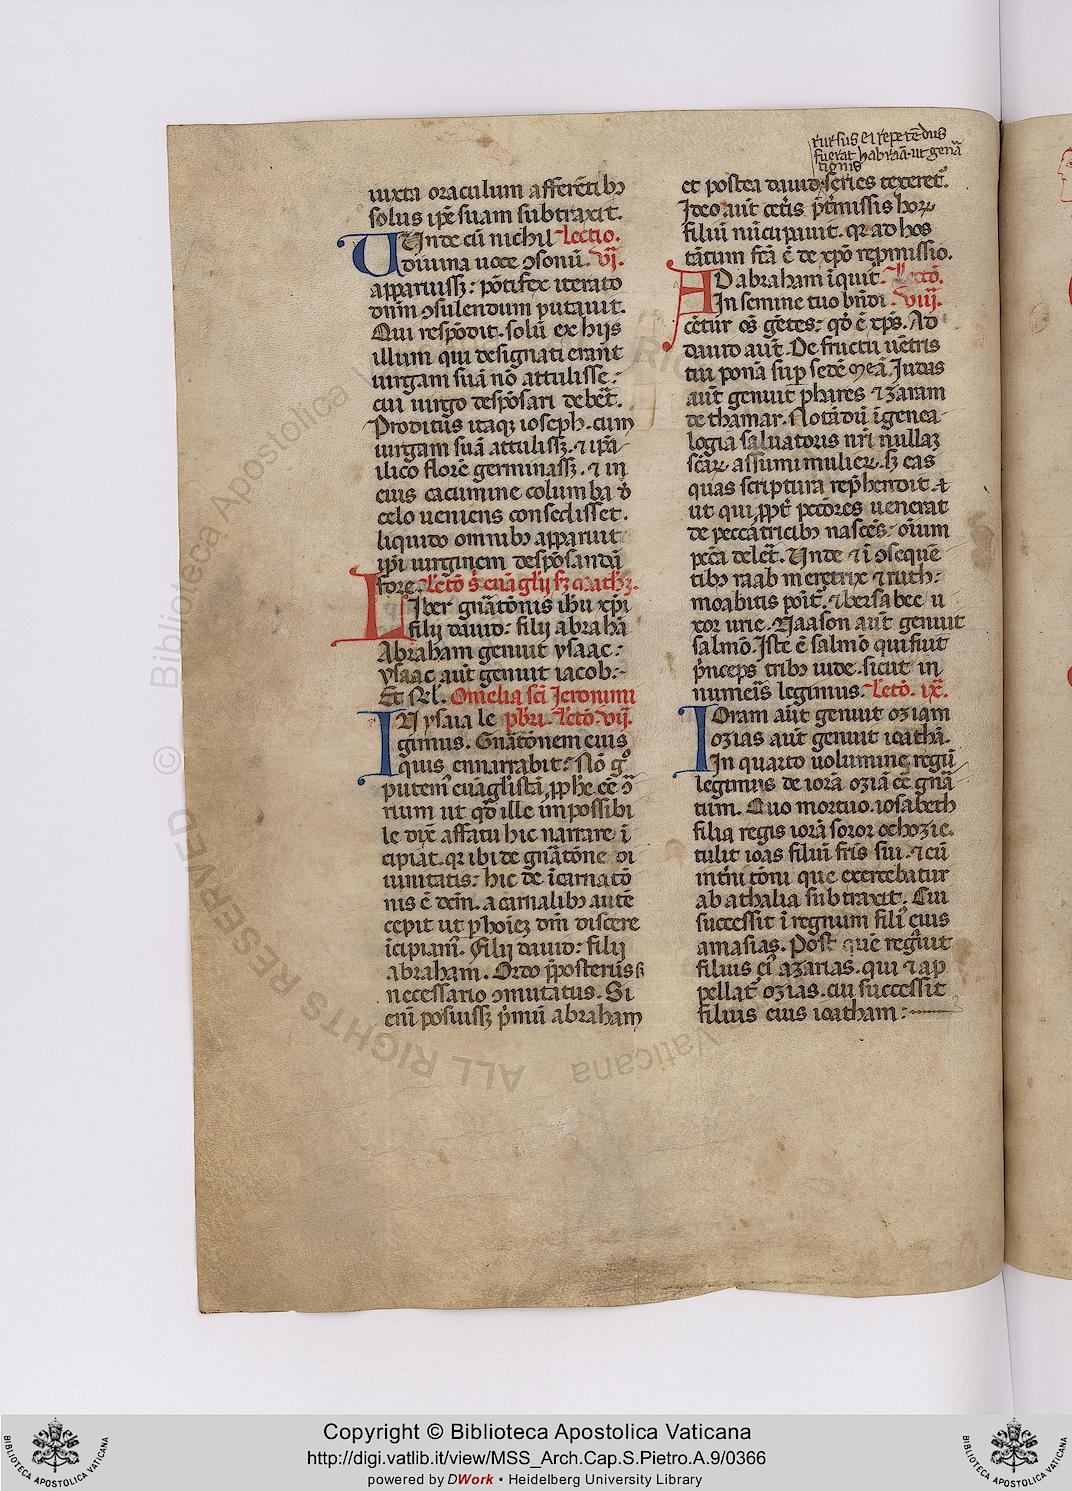 rursus ei repetēdus
fuerat habraā. ut genā
tionis
iuxta oraculum afferētibꝰ
solus ip̄e suam subtraxit.
Unde cū nichil Lectio.
diuina uoce ꝯsonū. vi.
apparuissꝫ: pōtifex iterato
dn̄m ꝯsulendum putauit.
Qui respōdit. solū ex hijs
illum qui designati erānt
uirgam suā nō attulisse:
cui uirgo despōsari debet̄.
Proditus itaqꝫ ioseph. cum
uirgam suā attulissꝫ. ⁊ ip̄a
ilico florē germinassꝫ. ⁊ in
eius cacumine columba d̄
celo ueniens consedisset.
liquido omnibꝰ apparuit
ip̄i uirginem despōsandā
fore. Lectō s̄ euāglij sꝫ matħꝫ.
Liber gnātōnis ih̄u xp̄i
filij dauid: filij abrahā
Abraham genuit ysaac:
ysaac aūt genuit iacob:
Et Rel. Omelia sc̄i Jeronimi
IN ysaia le pb̄ri. Lectō. vij.
gimus. Gnātōnem eius
quis ennarrabit: Nō gͦ
putem᷒ euāglistā ꝓph̄e. eē ꝯ̄
rium ut qd̄ ille impossibi
le dix̄ affatu hic narrare ī
cipiāt. qr ibi de gnātōne di
uinitatis: hic de īcarnatō
nis ē dc̄m. a carnalibꝰ autē
cepit ut p hoīeꝫ dm̄ discere
īcipiam᷒. Filij dauid: filij
abraham. Ordo p̄posterus sꝫ
necessario ꝯmutatus. Si
eni᷒ posuissꝫ p̄mū abraham
et postea dauid series texeret᷒.
Ideo aūt cet̄is p̄t̄missis horꝝ
filiū nūcupauit. qr ad hos
tātum fc̄ā ē de xp̄o rep̄missio.
AD abraham īquit. Lectō.
In semine tuo bn̄di viij.
cētur oēs gētes: qd̄ ē xp̄s. Ad
dauid aūt. De fructu uētris
tui ponā sup sedē meā. Judas
aūt genuit phares ⁊ zaram
de thamar. Notādū īgenea
logia saluatoris nr̄i nullaꝫ
sc̄āꝝ assumi mulieꝝ. sꝫ eas
quas scriptura rep̄hendit. ⁊
ut qui ꝓpt̄ pecc̄ores uenerat
de peccatricibꝰ nascēs. oīum
pecc̄a delet̄. Unde ⁊ ī ꝯsequē
tibꝰ raab meretrix ⁊ ruth:
moabitis poīt᷒. ⁊ bersabee u
xor urie. Naason aūt genuit
salmō. Iste ē salmō qui fuit
p̄nceps tribꝰ iude. sicut in
numeris legimus. Lectō. ix.
IOram aūt genuit oziam
ozias aūt genuit ioathā.
In quarto uolumine regū
legimus de iorā oziā eē gnā
tum. Quo mortuo. iosabeth
filia regis iorā soror ochozie.
tulit ioas filiū fr̄is sui. ⁊ eū
int̄ni tōni que exercebatur
ab athalia subtraxit. Cui
successit ī regnum fili᷒ eius
amasias. Post quē regn̄uit
filius ei᷒ azarias. qui ⁊ ap
pellat᷒ ozias. cui successit
filius eius ioatham:
© Biblioteca Apostolica Vaticana
ALL RIGHTS RESERVED
Copyright © Biblioteca Apostolica Vaticana
http://digi.vatlib.it/view/MSS_Arch.Cap.S.Pietro.A.9/0366
powered by DWork • Heidelberg University Library
BIBLIOTECA APOSTOLICA VATICANA
BIBLIOTECA APOSTOLICA VATICANA